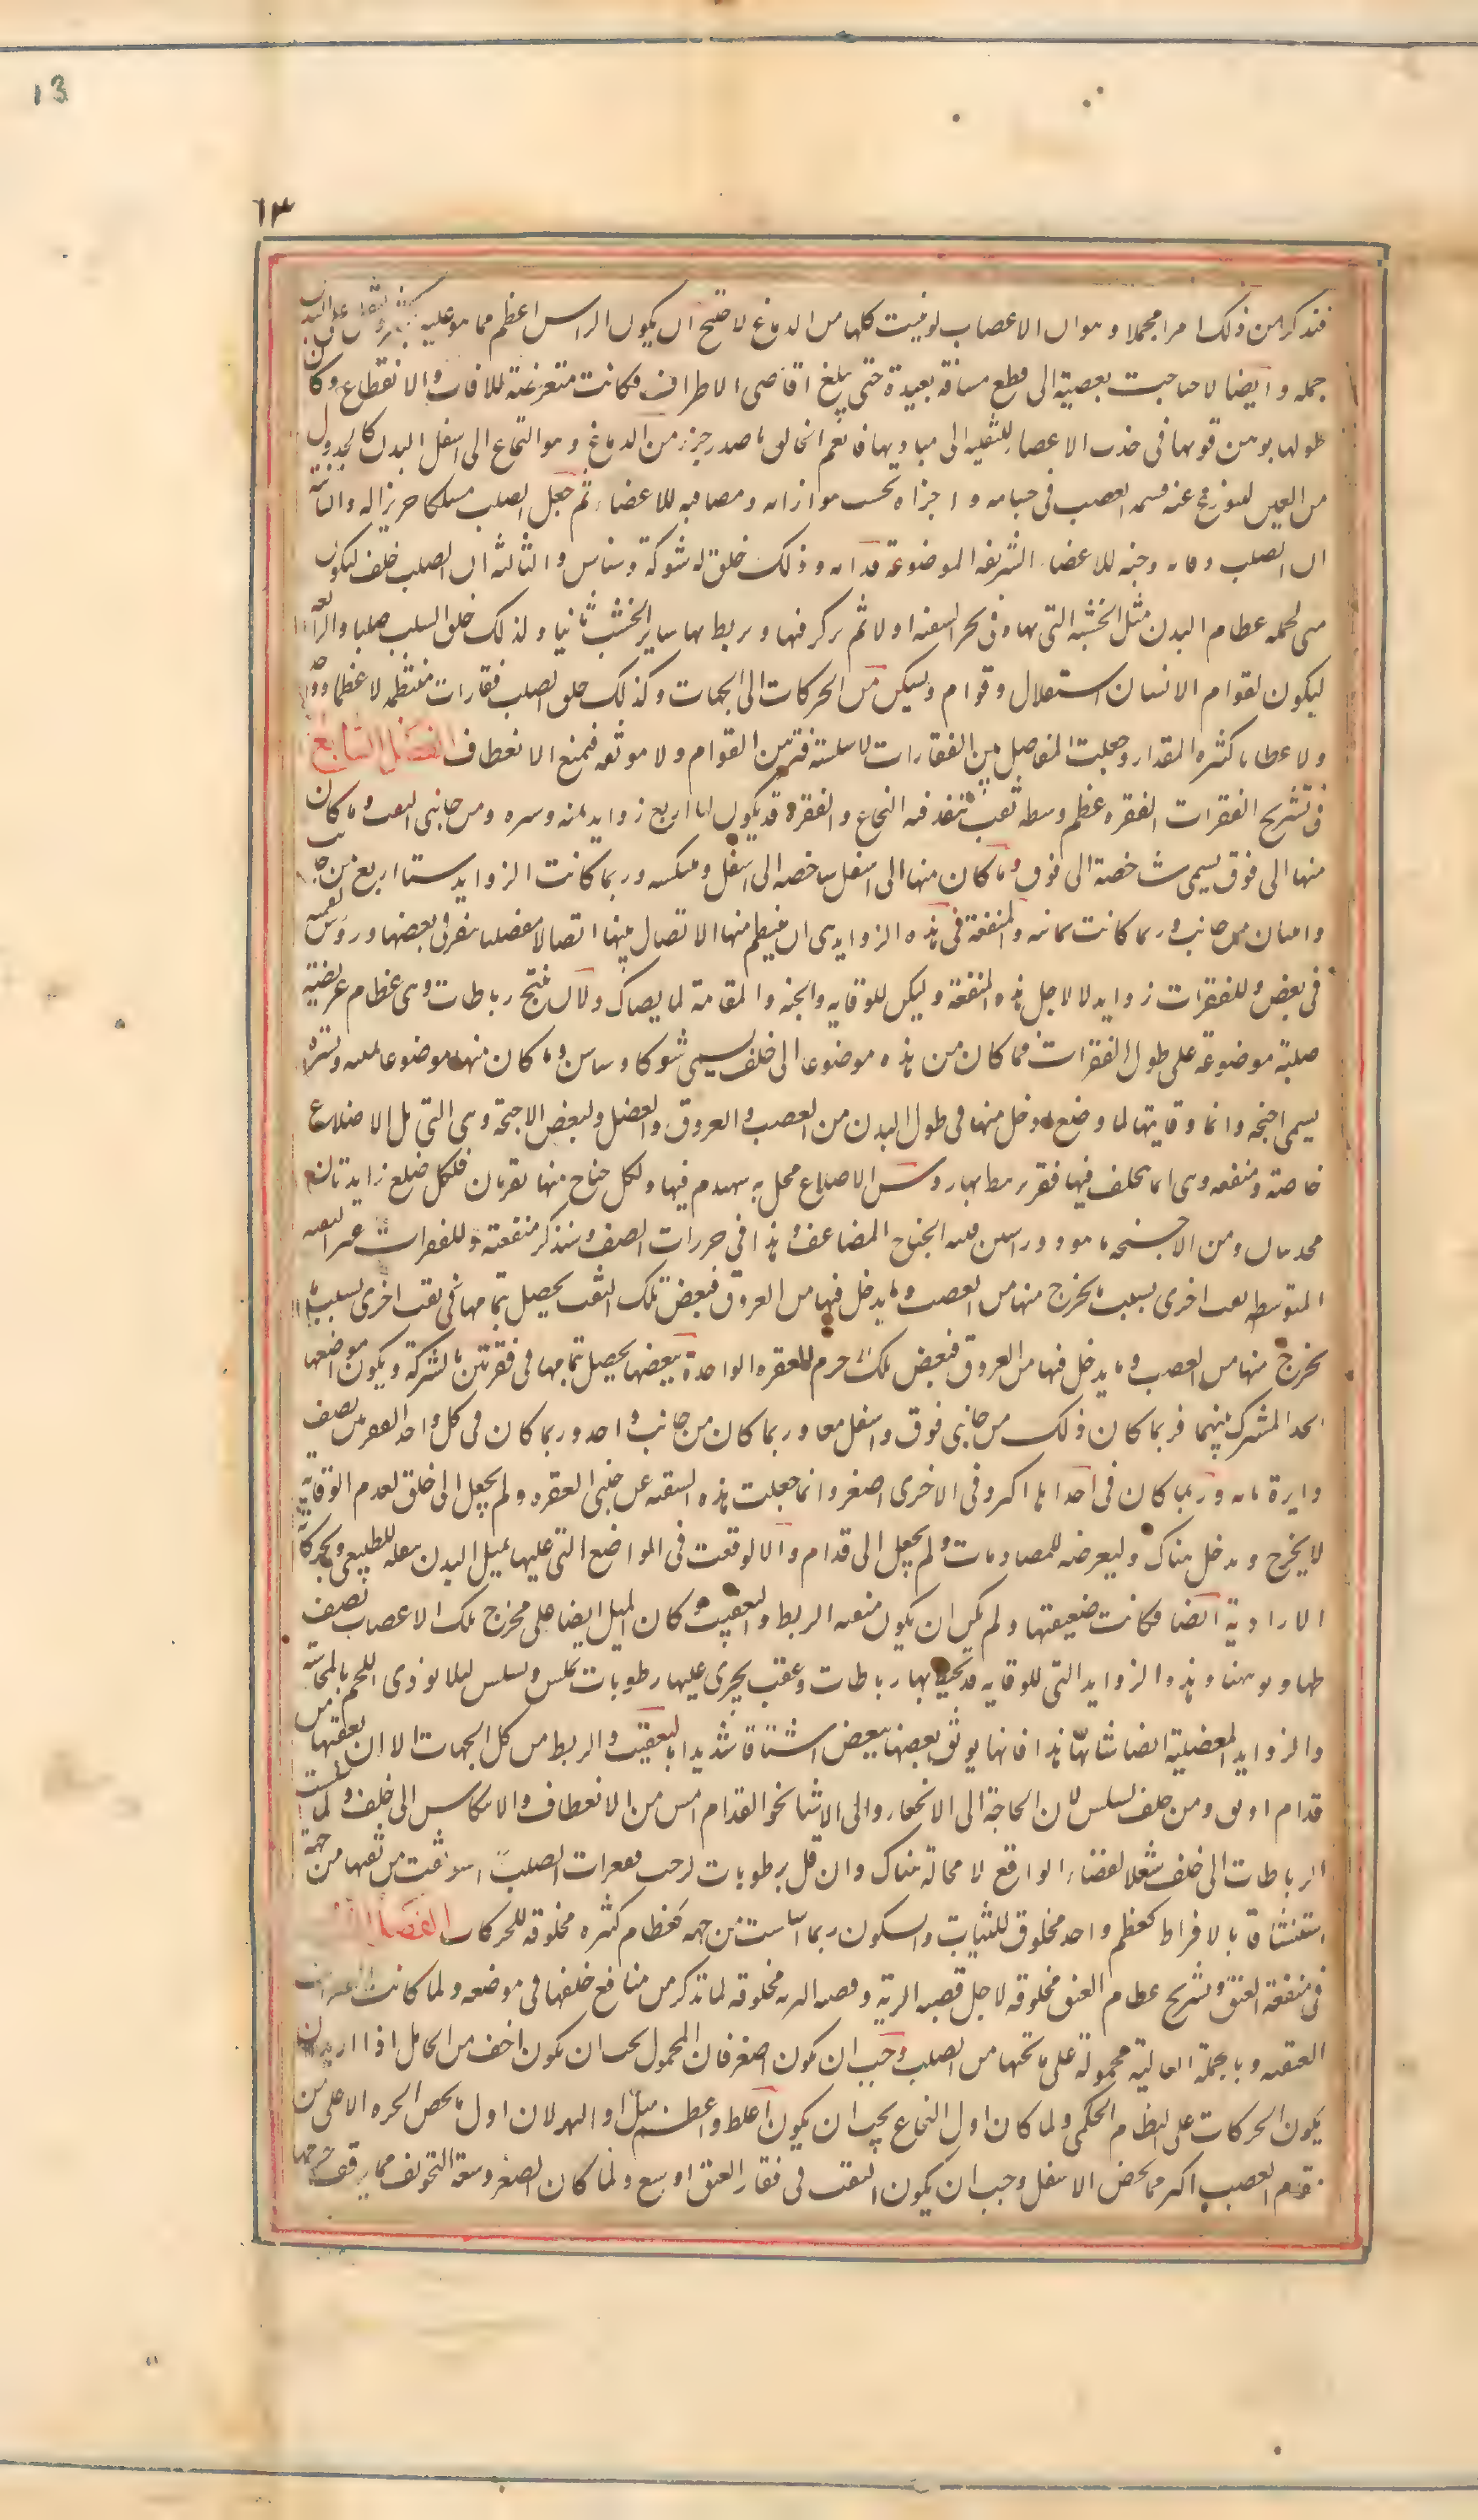 13
١٣
فنذكر من ذلك امرا مجملا وهو ان الاعصاب لو نبتت كلها من الدماغ لاحتيج ان يكون الراس اعظم مما هو عليه بكثير ولثقل على البدن
حمله وايضا لاحتاجت العصبة الى قطع مسافة بعيدة حتى يبلغ اقاصى الاطراف فكانت متعرضة للافات والانقطاع وكان
طولها يوهن قوتها فى جذب الاعضاء الثقيلة الى مباديها فانعم الخالق باصدار جزء من الدماغ وهو النخاع الى اسفل البدن كالجدول
من العين ليتوزع عنه قسمة العصب فى جنباته واجزاه بحسب موازاته ومصاقبه للاعضاء ثم جعل الصلب مسلكا حريزا له والثانية
ان الصلب وقايه وجنه للاعضاء الشريفه الموضوعة قدامه ولذلك خلق له شوكة وسناسن والثالثه ان الصلب خلق ليكون
مبنى لجمله عظام البدن مثل الخشبه التى تهيا فى نجر السفينه اولا ثم يركز فيها ويربط بها ساير الخشب ثانيا ولذلك خلق الصلب صلبا والرابعه
ليكون لقوام الانسان استقلال وقوام وتمكن من الحركات الى الجهات ولذلك خلق الصلب فقارات منتظمه لا عظما واحدا
ولا عظاما كثيره المقدار وجعلت المفاصل بين الفقارات لا سلسة فتوهن القوام ولا موثقه فتمنع الانعطاف الفصل السابع
فى تشريح الفقرات الفقره عظم وسطه ثقب ينفذ فيه النخاع والفقرة قد يكون لها اربع زوايد يمنه ويسره ومن جانبى الثقب وما كان
منها الى فوق يسمى شاخصة الى فوق وما كان منها الى اسفل شاخصه الى اسفل ومنتكسه وربما كانت الزوايد ستا اربع من جانب
واثنان من جانب وربما كانت ثمانيه والمنفعة فى هذه الزوايد هى ان ينتظم منها الاتصال بينها اتصالا مفصليا بنقر فى بعضها وروس لقميه
فى بعض وللفقرات زوايد لا لاجل هذه المنفعة ولكن للوقايه والجنه والمقاومة لما يصاك ولان ينتج رباطات وهى عظام عريضة
صلبة موضوعة على طول الفقرات فما كان من هذه موضوعا الى خلف يسمى شوكا وسناسن وما كان منها موضوعا يمنه ويسره
يسمى اجنحه وانما وقايتها لما وضع ادخل منها فى طول البدن من العصب والعروق والعضل ولبعض الاجنحة وهى التى تلى الاضلاع
خاصة منفعه وهى انها تخلف فيها فقر يرتبط بها روس الاضلاع محدبه يتهندم فيها ولكل جناح منها نقرتان فلكل ضلع زايدتان
محدبتان ومن الاجنحه ما هو ذو راسين فيشبه الجناح المضاعف وهذا فى خرزات العنق وسنذكر منفعته وللفقرات غير الثقبه
المتوسطه ثقب اخرى بسبب ما يخرج منها من العصب وما يدخل فيها من العروق فبعض تلك الثقب يحصل بتمامها فى ثقب اخرى بسبب ما
يخرج منها من العصب وما يدخل فيها من العروق فبعض تلك جرم الفقره الواحدة وبعضها يحصل بتمامها فى فقرتين بالشركة ويكون موضعها
الحد المشترك بينهما فربما كان ذلك من جانبى فوق واسفل معا وربما كان من جانب واحد وربما كان فى كل واحد الفقرتين نصف
دايرة تامه وربما كان فى احداهما اكبر وفى الاخرى اصغر وانما جعلت هذه الثقبه عن جنبى الفقره ولم يجعل الى خلف لعدم الوقاية
لا يخرج ويدخل هناك وليعرضه للمصادمات ولم يجعل الى قدام والا لوقعت فى المواضع التى عليها يميل البدن بثقله الطبيعى وبحركاته
الارادية ايضا فكانت ضيعفتها ولم يمكن ان يكون متقنه الربط والتعقيب وكان الميل ايضا على مخرج تلك الاعصاب
وهذه الزوايد التى للوقايه قد يحيط بها رباطات وعقب يجرى عليها رطوبات تملس وتسلس ليلا توذى اللحم بالمماسة
والزوايد المفصلية ايضا شانها هذا فانها يوثق بعضها ببعض ايثاقا شديدا بالتعقيب والربط من كل الجهات الا ان تعقيبها من
قدام اوثق ومن خلف اسلس لان الحاجة الى الانحناء والى الانثناء نحو القدام امس من الانعطاف والانتكاس الى خلف ولما سلست
الرباطات الى خلف شغل الفضاء الواقع لا محالة هناك وان قل برطوبات لزجه ففقرات الصلب من جهة
استيثاقا بالافراط كعظم واحد مخلوق للثبات والسكون ومن جهة كعظام كثيره مخلوقه للحركات الفصل
فى منفعة العنق وتشريح عظام العنق مخلوقه لاجل قصبه الرية وقصبه الريه مخلوقه لما نذكر من منافع خلقها فى موضعه ولما كانت الفقرات
العنقيه وبالجملة العالية محمولة على ما تحتها من الصلب وجب ان يكون اصغر فان المحمول يجب ان يكون اخف من الحامل اذا اريد ان
يكون الحركات على النظام الحكمى ولما كان اول النخاع يجب ان يكون اغلظ واعظم مثل اول النهر لان اول ما يخص الجزء الاعلى من
مقسم العصب اكثر مما يخص الاسفل وجب ان يكون الثقب فى فقار العنق اوسع ولما كان الصغر وسعة التجويف مما يرقق جرمها